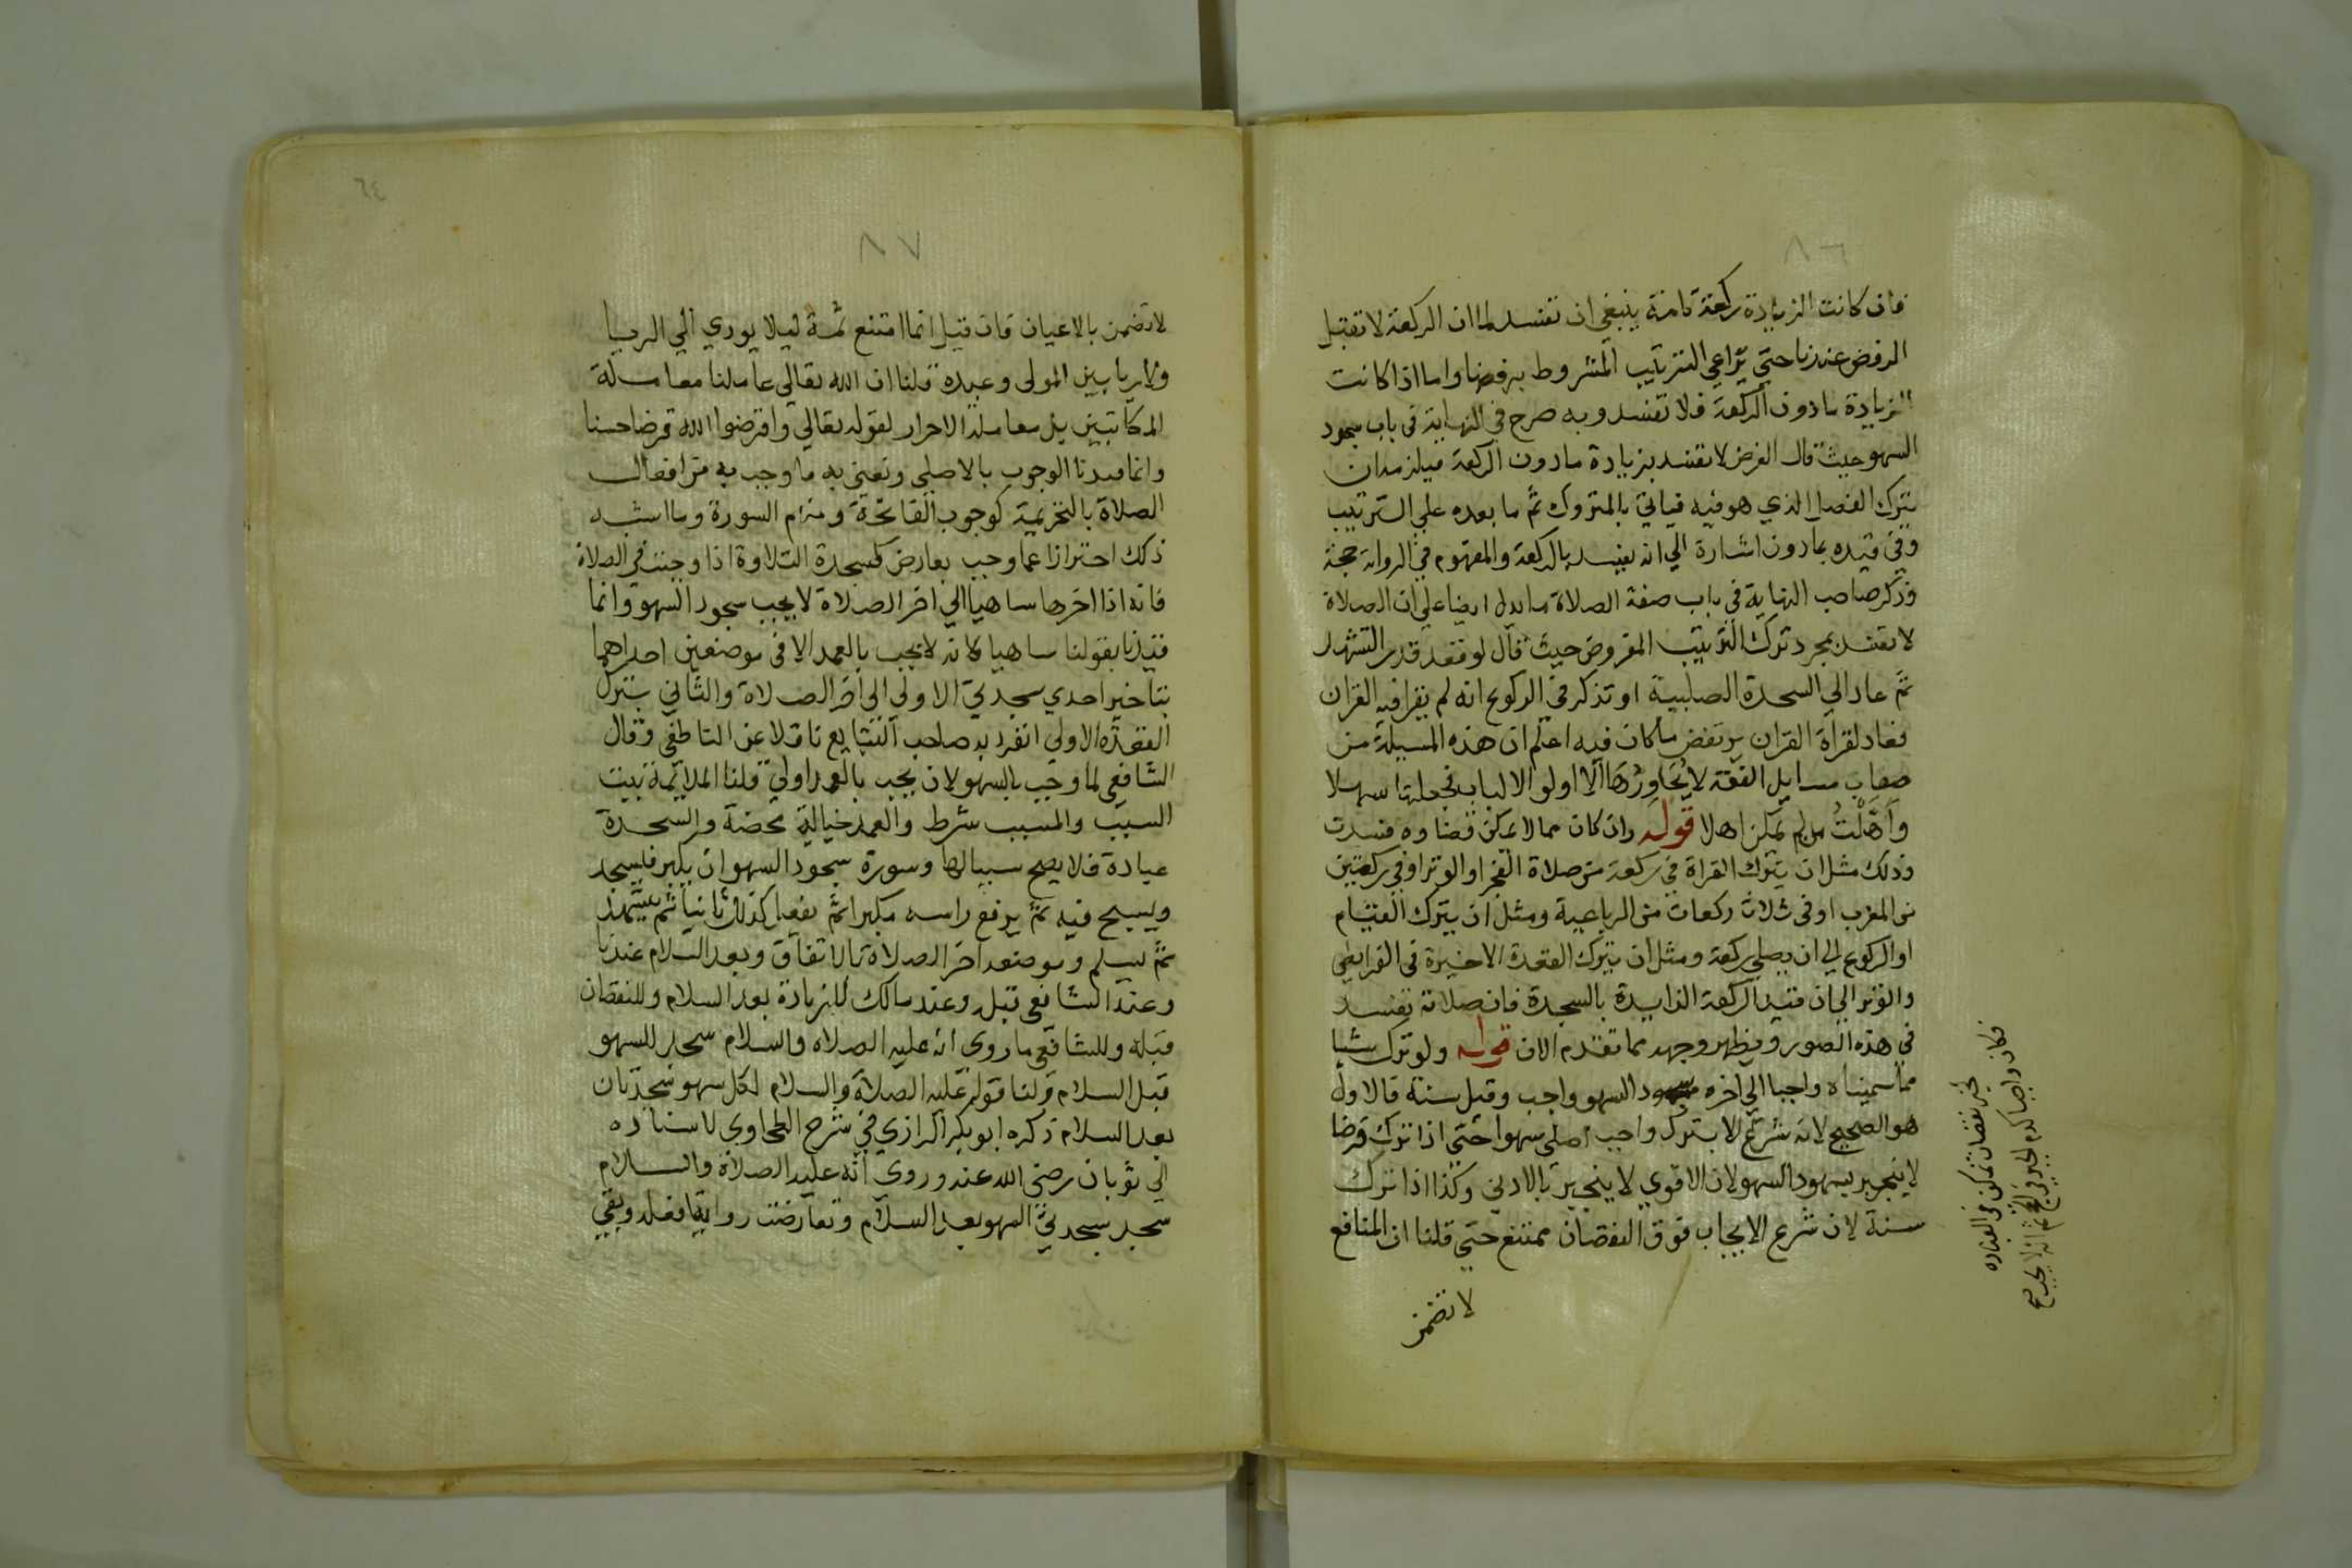 ٨٦
فان كانت الزيادة ركعة تامة ينبغي ان تفسد لما ان الركعة لا تقبل
الرفض عندنا حتي يراعي الترتيب المشروط برفضها واما اذا كانت
الزيادة ما دون الركعة فلا تفسد وبه صرح في النهاية في باب سجود
السهو حيث قال الفرض لا يفسد بزيادة مادون الركعة فيلزمه ان
يترك الفصل الذي هو فيه فياتي بالمتروك ثم ما بعده علي الترتيب
وفي قيده بمادون اشارة الي انه يفسد بالركعة والمفهوم في الرواية حجة
وذكر صاحب النهاية في باب صفة الصلاة ما يدل ايضا علي ان الصلاة
لا تفسد بمجرد ترك الترتيب المفروض حيث قال لو قعد قدر التشهد
ثم عاد الي السجدة الصلبية او تذكر في الركوع انه لم يقرا فيه القران
فعاد لقراة القران يرتفض ما كان فيه اعلم ان هذه المسيلة من
صعاب مسايل الفقه لا يحاورها الا اولو الالباب فجعلتها سهلا
واهلت من لم يكن اهلا قوله وان كان مما لا يمكن قضاوه فسدت
وذلك مثل ان يترك القراة في ركعة من صلاة الفجر او الوتر او في ركعتين
من المغرب او في ثلاث ركعات من الرباعية ومثل ان يترك القيام
او الركوع الي ان يصلي ركعة ومثل ان يترك القعدة الاخيرة في الفرايض
والوتر الي ان قيد الركعة الزايدة بالسجدة فان صلاته تفسد
في هذه الصور ويظهر وجهه مما تقدم الان قوله ولو ترك شيا
مما سميناه واجبا الي اخره سجود السهو واجب وقيل سنة قالاول
هو الصحيح لانه شرع لا بترك واجب اصلي سهوا حتي اذا ترك فرضا
لا ينجبر بسجود السهو لان الاقوي لا ينجبر بالادني وكذا اذا ترك
سنة لان شرع الايجاب فوق النقصان ممتنع حتي قلنا ان المنافع
لا تضمن
نقصان تمكن في العباده
فكان واجبا
٣٤
٨٧
لا تضمن بالاعيان فان قيل انما امتنع ثمة ليلا يودي الي الربا
ولا ربا بين المولى وعبده قلنا ان الله تعالي عاملنا معاملة
المكاتبين بل معاملة الاحرار لقوله تعالي واقرضوا الله قرضا حسنا
وانما قيدنا الوجوب بالاصلي ونعني به ما وجب به من افعال
الصلاة بالتحريمة كوجوب الفاتحة وضم السورة وما اشبه
ذلك احترازا عما وجب بعارض كسجدة التلاوة اذا وجبت في الصلاة
فانه اذا اخرها ساهيا الي اخر الصلاة لا يجب سجود السهو وانما
قيدنا بقولنا ساهيا لانه لا يجب بالعمد الا في موضعين احداهما
بتاخير احدي سجدتي الاولي الي اخر الصلاة والثاني بترك
القعدة الاولي انفرد به صاحب الينابيع ناقلا عن الناطفي وقال
الشافعي لما وجب بالسهو لان يجب بالعمد اولي قلنا الملايمة بين
السبب والمسبب شرط والعمد جناية محضة والسجدة
عبادة فلا يصح سببا لها وصورة سجود السهو ان يكبر فيسجد
ويسبح فيه ثم يرفع راسه مكبرا ثم يفعل كذلك ثانيا ثم يتشهد
ثم يسلم وموضعه اخر الصلاة بالاتفاق وبعد السلام عندنا
وعند الشافعي قبله وعند مالك للزيادة بعد السلام وللنقصان
قبله وللشافعي ما روي انه عليه الصلاه والسلام سجد للسهو
قبل السلام ولنا قوله عليه الصلاة والسلام لكل سهو سجدتان
بعد السلام ذكره ابو بكر الرازي في شرح الطحاوي لاسناده
الي ثوبان رضي الله عنه وروي انه عليه الصلاة والسلام
سجد سجدتي السهو بعد السلام وتعارضت روايتا فعله وبقي